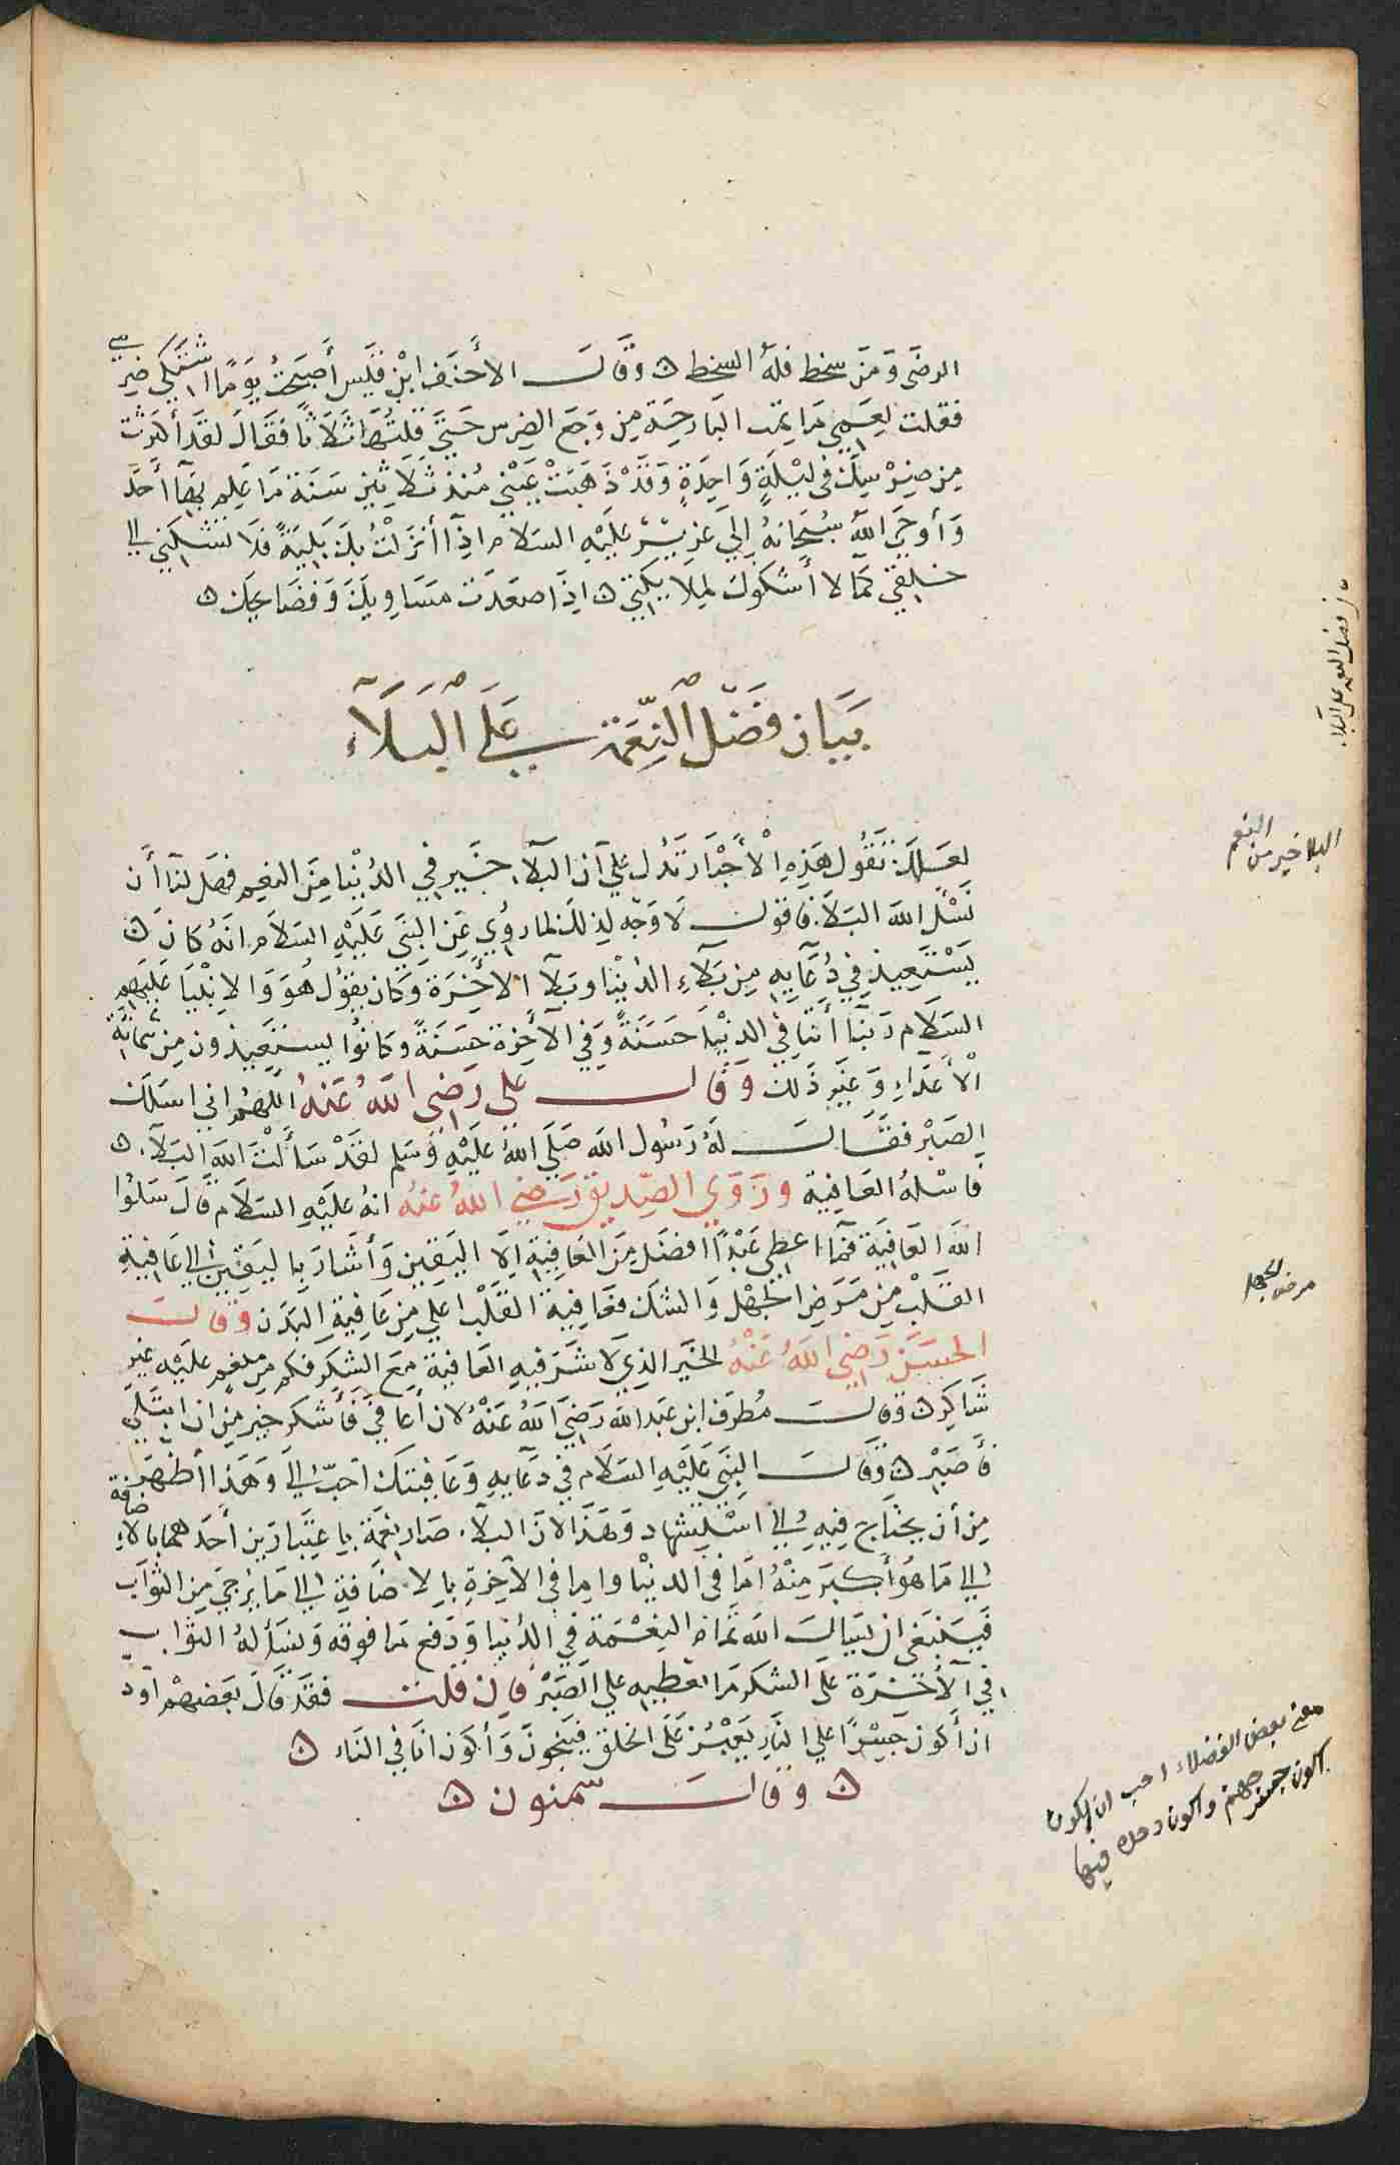 الرضَى وَمَن سخط فلهُ السخط ۞ وَقَالَ الأَحنَف ابْن قَيْس أَصبَحتُ يَومًا اشْتَكي ضِرْسي
فقلت لِعَمِي مَا نِمت البَارحَة مِن وَجَع الضِرس حَتيَ قلتُهَا ثَلاَثًا فقَالَ لقَد أكثَرتَ
مِن ضِرْسِكَ في لَيْلَةٍ وَاحِدَةٍ وَقَدْ ذَهَبَتْ عَيْني مُنذ ثَلاَثين سَنَة مَا عَلِم بِهَا أحَدٌ
وَأوحَى اللهُ سُبحَانهُ إلى عُزيْرٌ عليْه السَلام اذا أنزَلْتُ بكَ بَليَةً فَلاَ تشكني الى
خلقي كَمَا لا أشكوكَ لملَايكَتي ۞ اذَا صَعَدَت مسَاويكَ وَفضَايحكَ ۞
بَيَان فَضْل النِّعْمَة عَلَى الْبَلَآء
لعَلكَ تقُول هَذِهِ الأخبَار تَدُل عَلي أن البَلآء خَير في الدُنْيا مِنَ النعِيم فهَل لنَا أن
نَسْئل اللهَ البَلآَ فاقول لاَ وَجْه لِذلكَ لما رُوي عَن النبَي عَليَهْ السَلام انهُ كان ۞
يَسْتَعيذ في دُعَآيهِ مِن بَلآءِ الدُنيْا وبَلآءِ الآخِرَة وَكان يقوُل هُوَ وَالانْبيَا عَليَهم
السَلَام رَبنَا أتنَا في الدنْيَا حَسَنَةً وَفي الآخِرة حَسَنَةً وكانوُا يستعَيذون مِن شمَاتَة
الأعدَاءِ وَغيَر ذَلكَ وَقَال علي رَضِي اللهُ عَنهُ اللهُم اني اسئلك
الصَبْر فقَالَ لهُ رَسُول الله صَلَي اللهُ عليَهْ وَسَلم لقَدْ سَألْتَ الله البَلآء ۞
فَاسْئلهُ العَافية وَرَوَي الصِدّيق رَضي اللهُ عنهُ انهُ عليَهْ السَلام قَالَ سَلوُا
اللهَ العَافيَة فمَا اعطي عَبْدًا افضَل مِنَ العَافِيَةِ إلاَ اليَقين وَأشَارَ باليَقِين إلى عَافيَةِ
القَلْب مِن مَرَض الجَهْل وَالشكَ فعَافيَة القَلْب اعلي مِن عَافيةِ البَدَن وَقَالَ
الحسَنَ رَضِيَ اللهُ عَنْهُ الخَيَر الذِي لاَ شَرَ فيهِ العَافية مَعَ الشكر فكم مِن منعَمٍ عليَهْ غير
شَاكِرٍ ۞ وَقَالَ مُطرف ابن عَبد الله رَضِيَ اللهُ عَنْهُ لان أعَافَي فَأَشكر خير مِن ان ابتلَي
فَأصَبْر ۞ وَقَالَ النَبي عَليَهْ السَلام في دعَآيهِ وَعَافيَتكَ احَبّ الى وَهَذا أظهَر
مِن أن يحتَاج فيهِ إلى اسْتشِهاد وَهَذا لان البلآء صَار نعمَة باعِتبَارين أحَدهما بالاضَافة
الى مَا هُوَ أكبَر مِنْهُ امَا في الدنيْا وامَا في الآخِرة بالاضَافة الى مَا يُرجَى مِن الثوَاب
فَيَنْبَغي ان يَسأل الله تمَام النِعْمَة في الدُنيا وَدفع مَا فوقه وَيسَألهُ الثوَاب
في الآخرَة عَلَى الشكر مَا يعْطيه علي الصَبْر فَإن قلت فقَد قَالَ بَعضهُمْ أود
ان أكون جِسْرًا علي النار يَعْبُر عَلَى الخلق فينجونَ وَأكون انا في النَار ۞
۞ وَقَالَ سمنون ۞
فضل النعمة على البلاء
البلا خير من النعم
مرض الجهل
معنى بعض الفضلاء احب ان اكون
اكون جسر جهنم واكون وحدى فيها